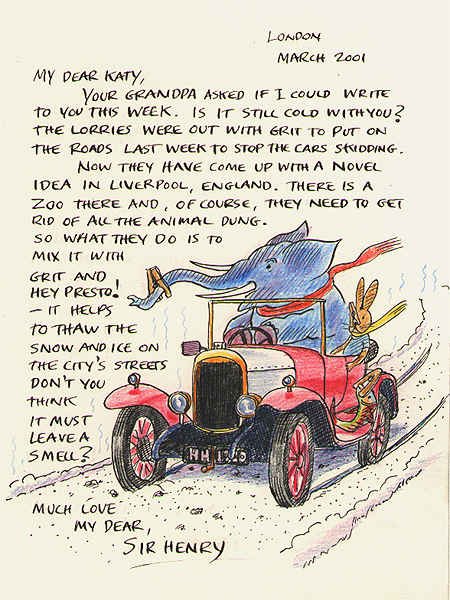 LONDON
MARCH 2001
MY DEAR KATY,
YOUR GRANDPA ASKED IF I COULD WRITE
TO YOU THIS WEEK. IS IT STILL COLD WITH YOU?
THE LORRIES WERE OUT WITH GRIT TO PUT ON
THE ROADS LAST WEEK TO STOP THE CARS SKIDDING.
NOW THEY HAVE COME UP WITH A NOVEL
IDEA IN LIVERPOOL, ENGLAND. THERE IS A
ZOO THERE AND, OF COURSE, THEY NEED TO GET
RID OF ALL THE ANIMAL DUNG.
SO WHAT THEY DO IS TO
MIX IT WITH
GRIT AND
HEY PRESTO!
– IT HELPS
TO THAW THE
SNOW AND ICE ON
THE CITY'S STREETS
DON'T YOU
THINK
IT MUST
LEAVE A
SMELL?
MUCH LOVE
MY DEAR,
SIR HENRY